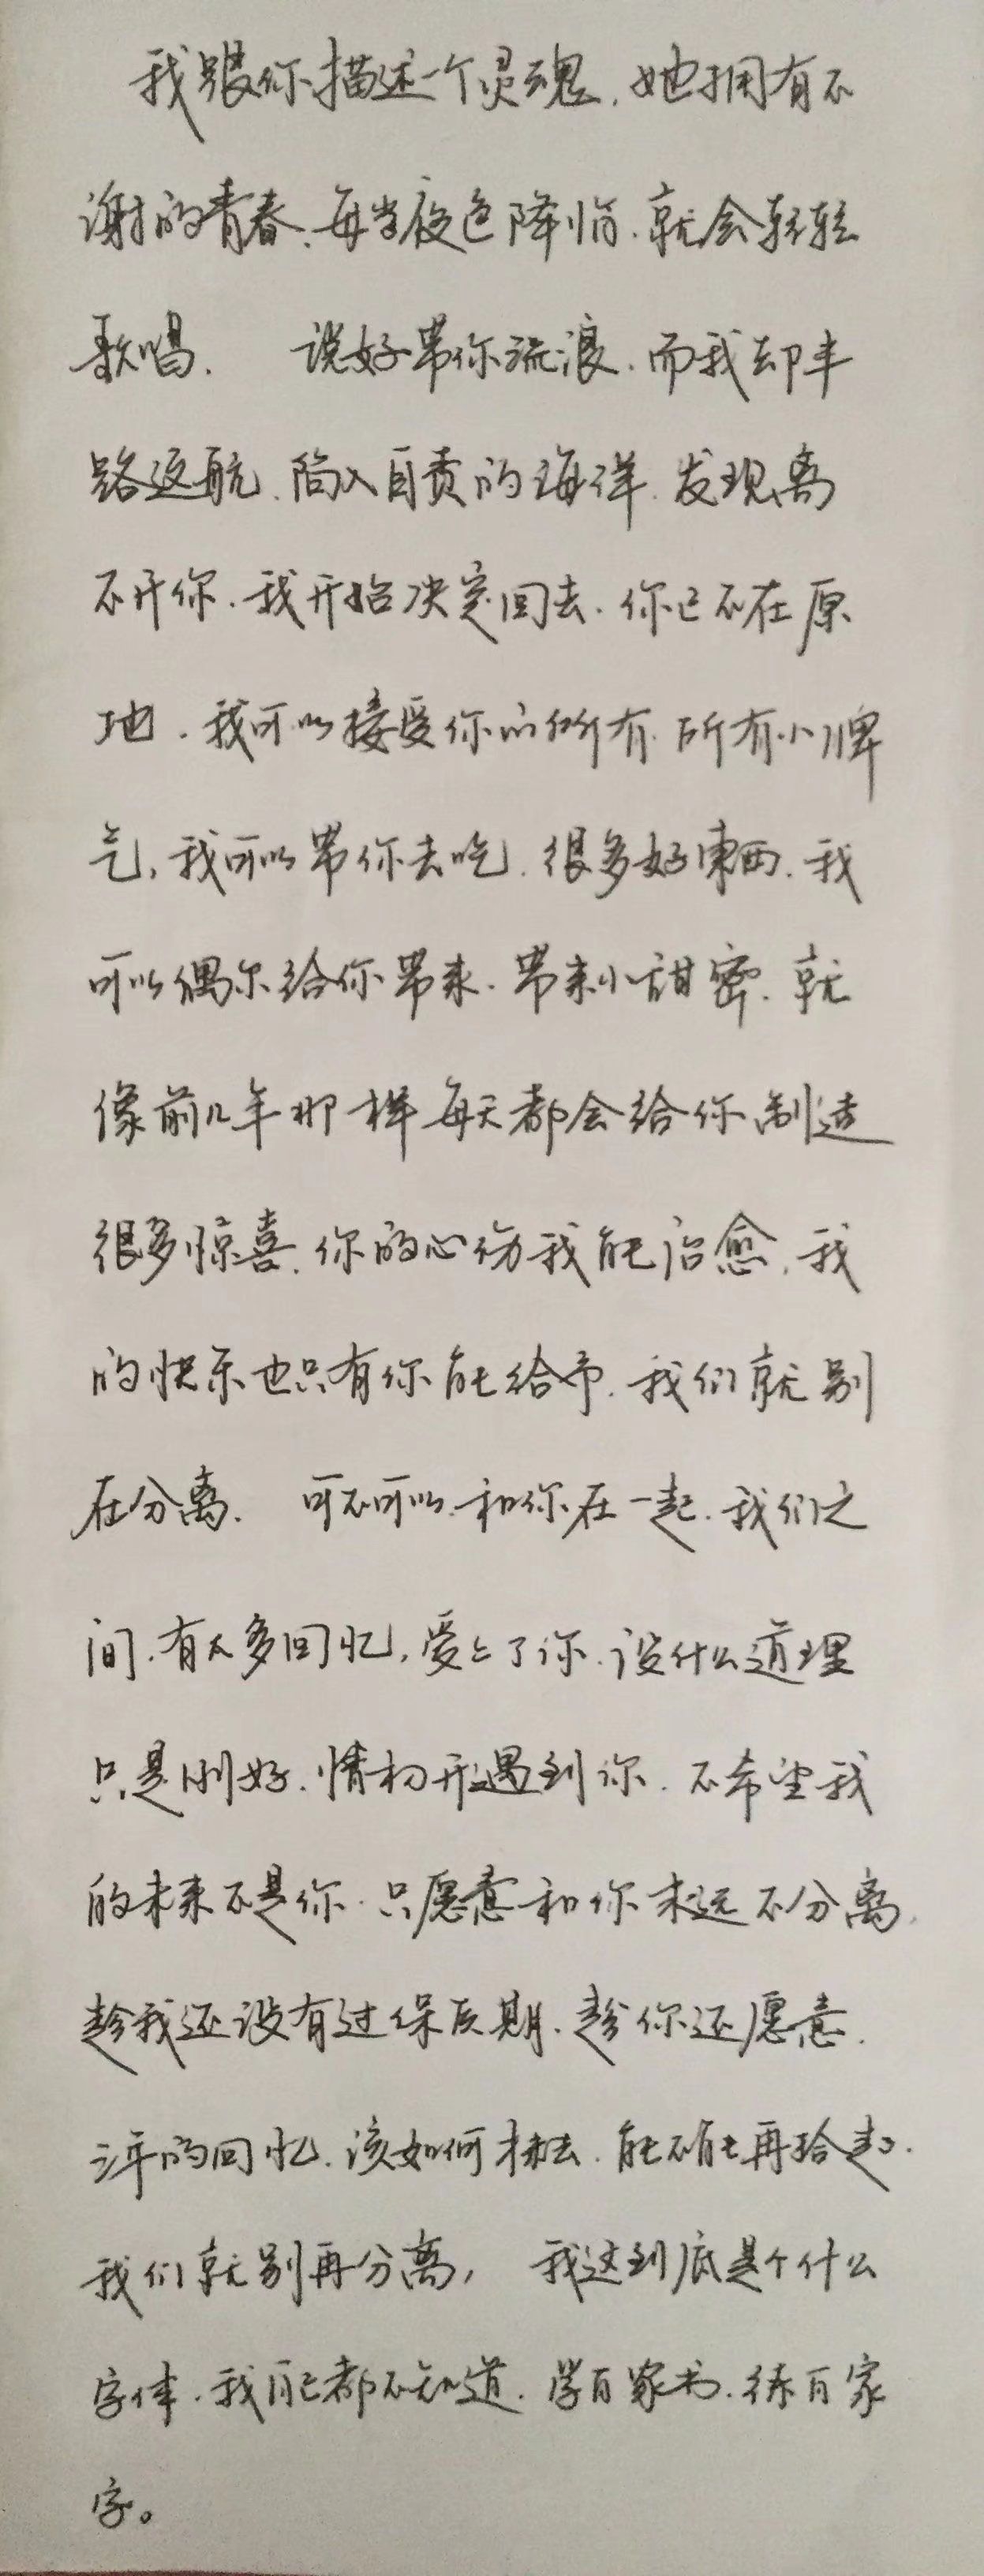 我跟你描述一个灵魂,她拥有不
谢的青春,每当夜色降临,就会轻轻
歌唱. 说好带你流浪,而我却半
路返航,陷入自责的海洋.发现离
不开你.我开始决定回去.你已不在原
地.我可以接受你的所有.所有小脾
气,我可以带你去吃.很多好東西.我
可以偶尔给你带来.带来小甜蜜.就
像前几年那样每天都会给你制造
很多惊喜.你的心伤我能治愈,我
的快乐也只有你能给予.我们就别
在分离. 可不可以.和你在一起.我们之
间.有太多回忆,爱上了你.没什么道理
只是刚好.情初开遇到你.不希望我
的未来不是你.只愿意和你永远不分离,
趁我还没有过保质期.趁你还愿意.
三年的回忆.该如何抹去.能不能再拾起.
我们就别再分离, 我这到底是个什么
字体.我自己都不知道.学百家书.练百家
字。